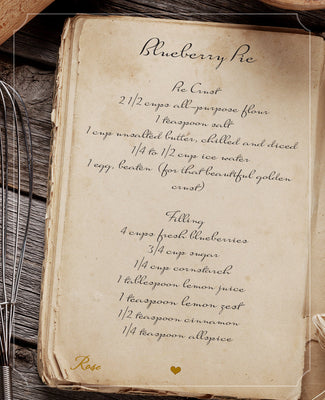 Blueberry Pie
Pie Crust
2 1/2 cups all-purpose flour
1 teaspoon salt
1 cup unsalted butter, chilled and diced
1/4 to 1/2 cup ice water
1 egg, beaten (for that beautiful golden
crust)
Filling
4 cups fresh blueberries
3/4 cup sugar
1/4 cup cornstarch
1 tablespoon lemon juice
1 teaspoon lemon zest
1/2 teaspoon cinnamon
1/4 teaspoon allspice
Rose